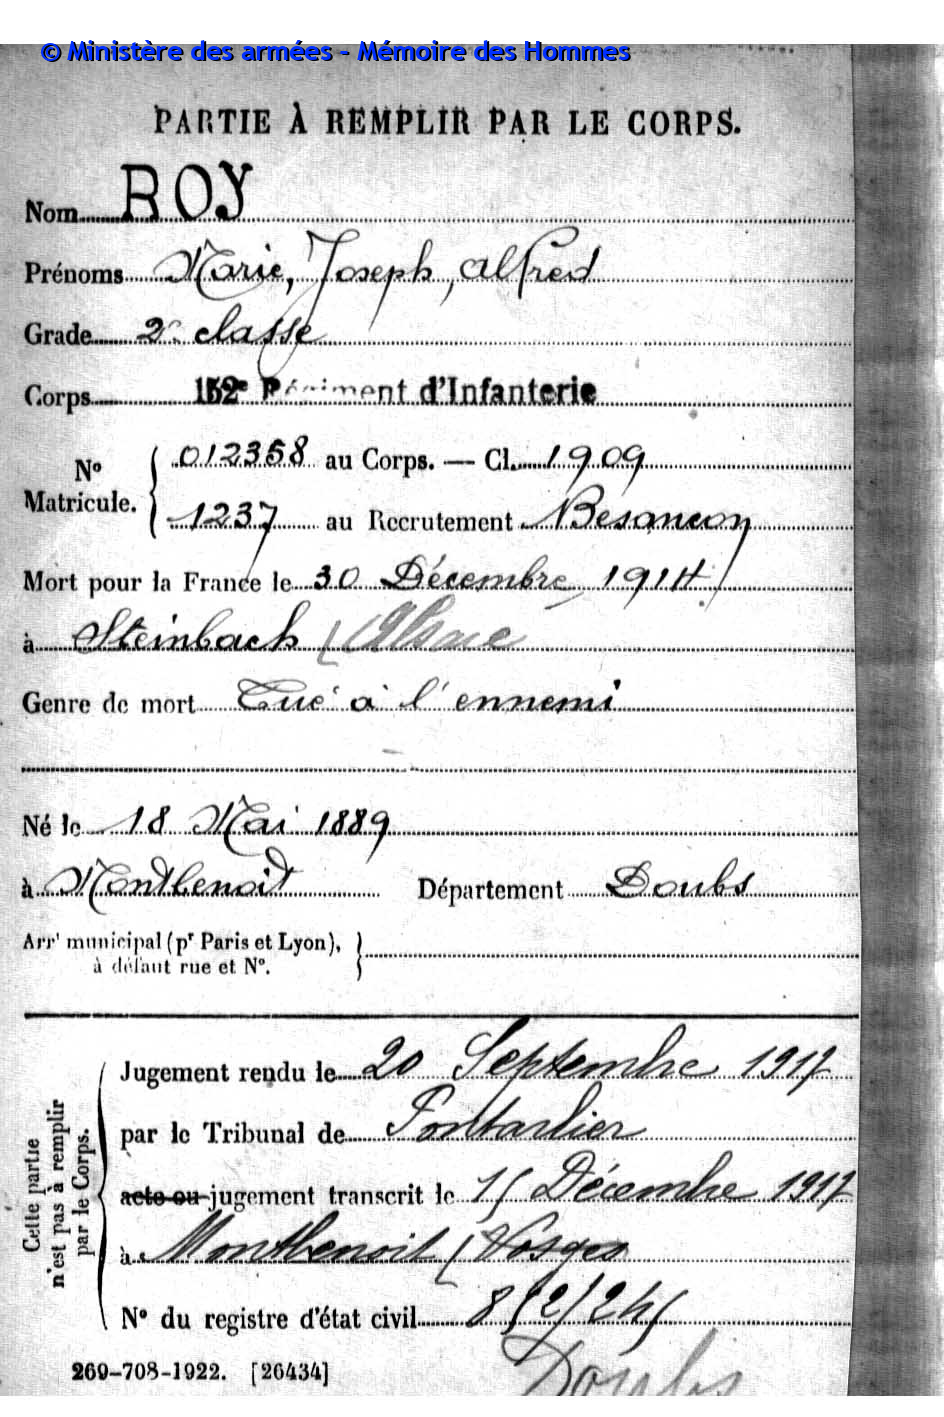 © Ministère des armées - Mémoire des Hommes
PARTIE À REMPLIR PAR LE CORPS.
Nom ROY
Prénoms Marie, Joseph, Alfred
Grade 2e classe
Corps 152e Régiment d'Infanterie
No Matricule. { 012358 au Corps. — Cl. 1909
1237 au Recrutement Besançon
Mort pour la France le 30 Décembre 1914
à Steinbach (Alsace
Genre de mort Tué à l'ennemi
Né le 18 Mai 1889
à Montbenoit Département Doubs
Arrt municipal (pr Paris et Lyon), }
à défaut rue et No.
Cette partie n'est pas à remplir par le Corps.
Jugement rendu le 20 Septembre 1917
par le Tribunal de Pontarlier
acte ou jugement transcrit le 15 Décembre 1917
à Montbenoit (Vosges
No du registre d'état civil
Doubs
269-708-1922. [26434]